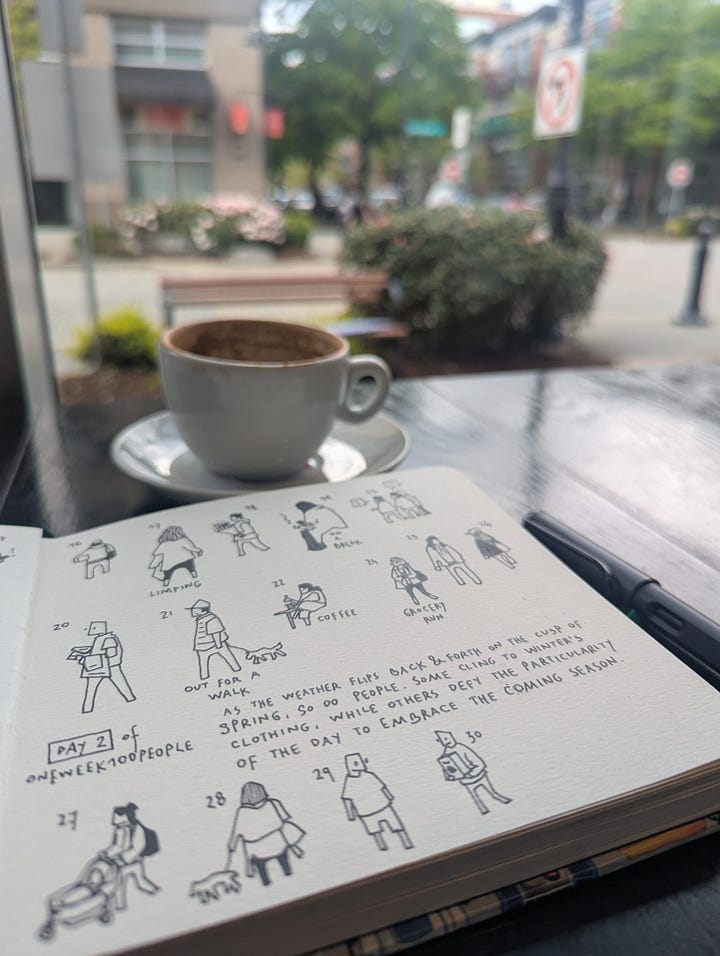 16
17
18
19
LIMPING
ON A
BREAK
20
21
22
COFFEE
24
25
26
GROCERY
RUN
OUT FOR A
WALK
AS THE WEATHER FLIPS BACK & FORTH ON THE CUSP OF
SPRING, SO DO PEOPLE. SOME CLING TO WINTER'S
CLOTHING, WHILE OTHERS DEFY THE PARTICULARITY
OF THE DAY TO EMBRACE THE COMING SEASON.
DAY 2 of
ONEWEEK100PEOPLE
27
28
29
30